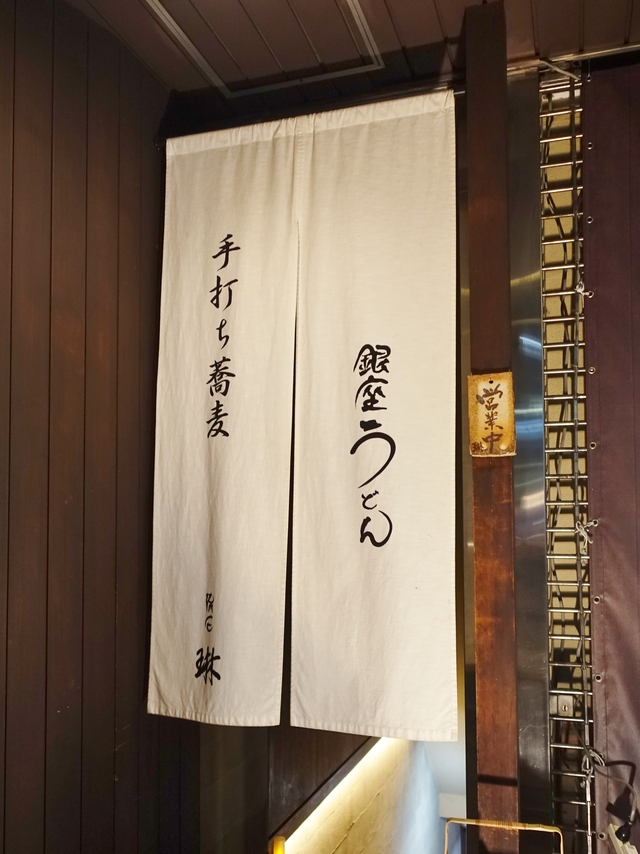 銀座うどん
手打ち蕎麦
琳
営業中